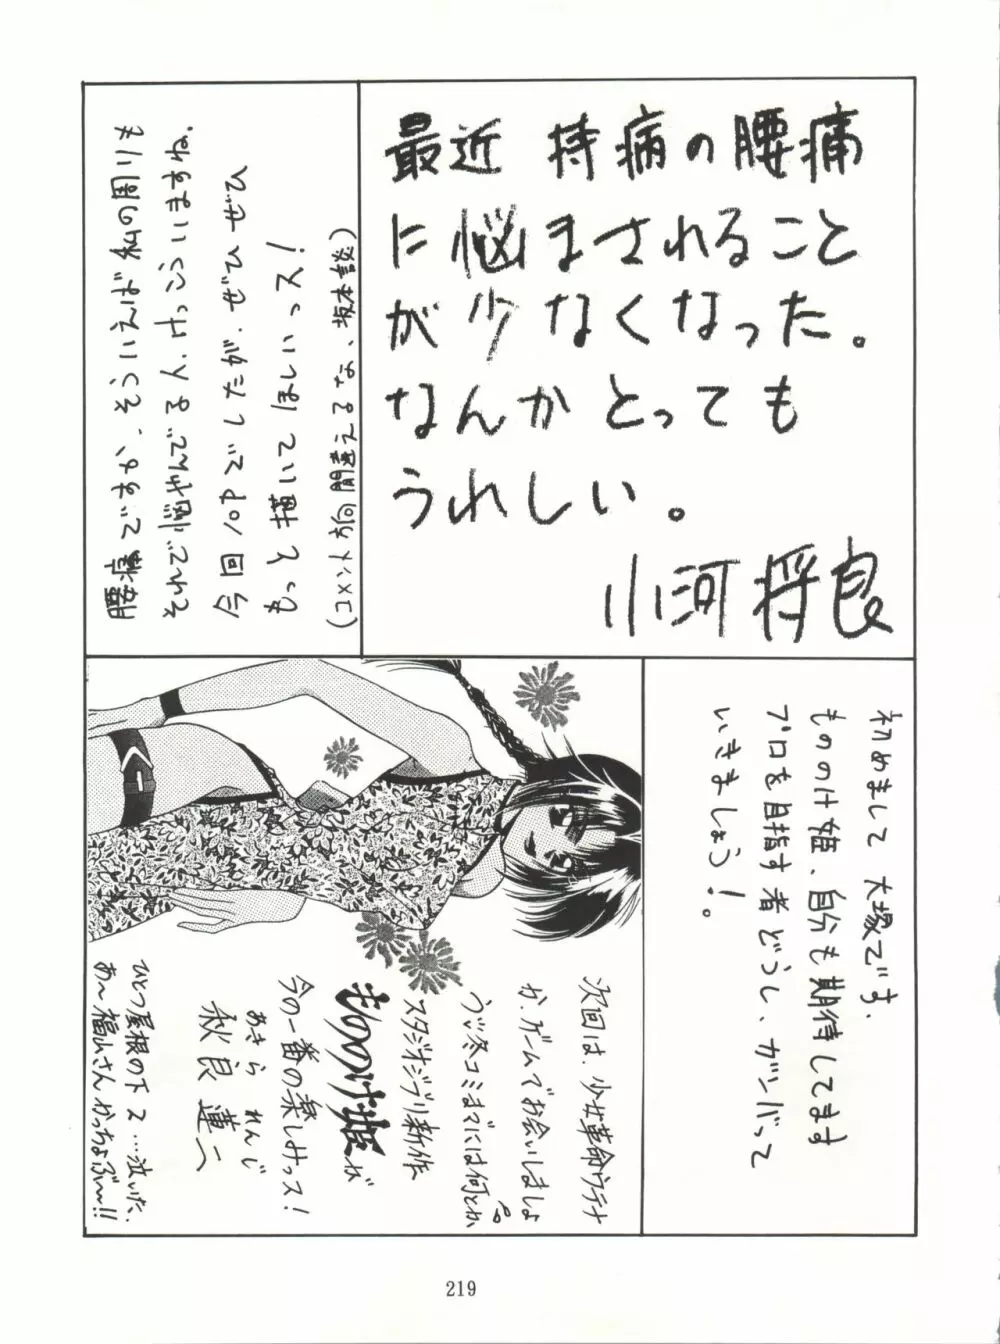 最近 持病の腰痛
に悩まされること
が少なくなった。
なんかとっても
うれしい。
小河将良
腰痛ですか、そういえば私の周りも
それで悩やんでる人、けっこういますね。
今回1Pでしたが、ぜひぜひ
もっと描いてほしいっス！
(コメント方向間違えるな、坂本談)
初めまして 大塚です。
もののけ姫、自分も期待してます
プロを目指す者どうし、ガンバって
いきましょう！。
次回は、少女革命ウテナ
か、ゲームでお会いしましょ
う♪冬コミまでには何とか
スタジオジブリ新作
もののけ姫が
今の一番の楽しみっス！
あきら れんじ
秋良 蓮二
ひとつ屋根の下2…泣いた。
あ〜福山さんかっちょぶ〜!!
219